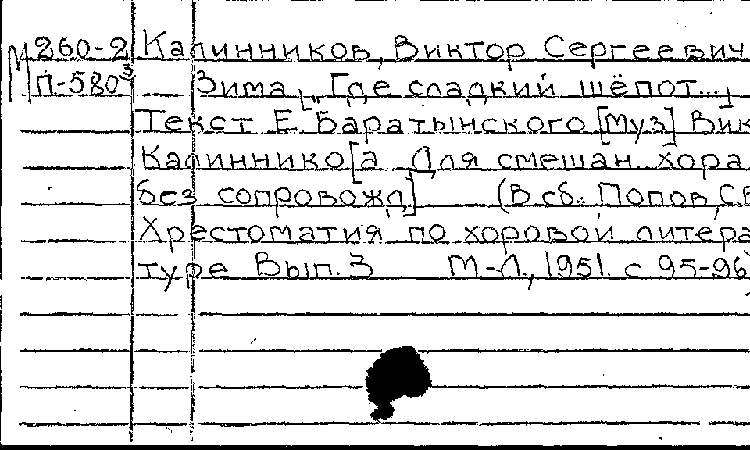 М 260-2 Калинников, Виктор Сергеевич
П-580³ — Зима „Где сладкий шёпот..."
Текст Е. Баратынского [Муз] Вик
Калиннико[а Для смешан. хора
без сопровожд] (В сб. Попов, С.В
Хрестоматия по хоровой литера
туре Вып. 3 М-Л., 1951. с 95-96